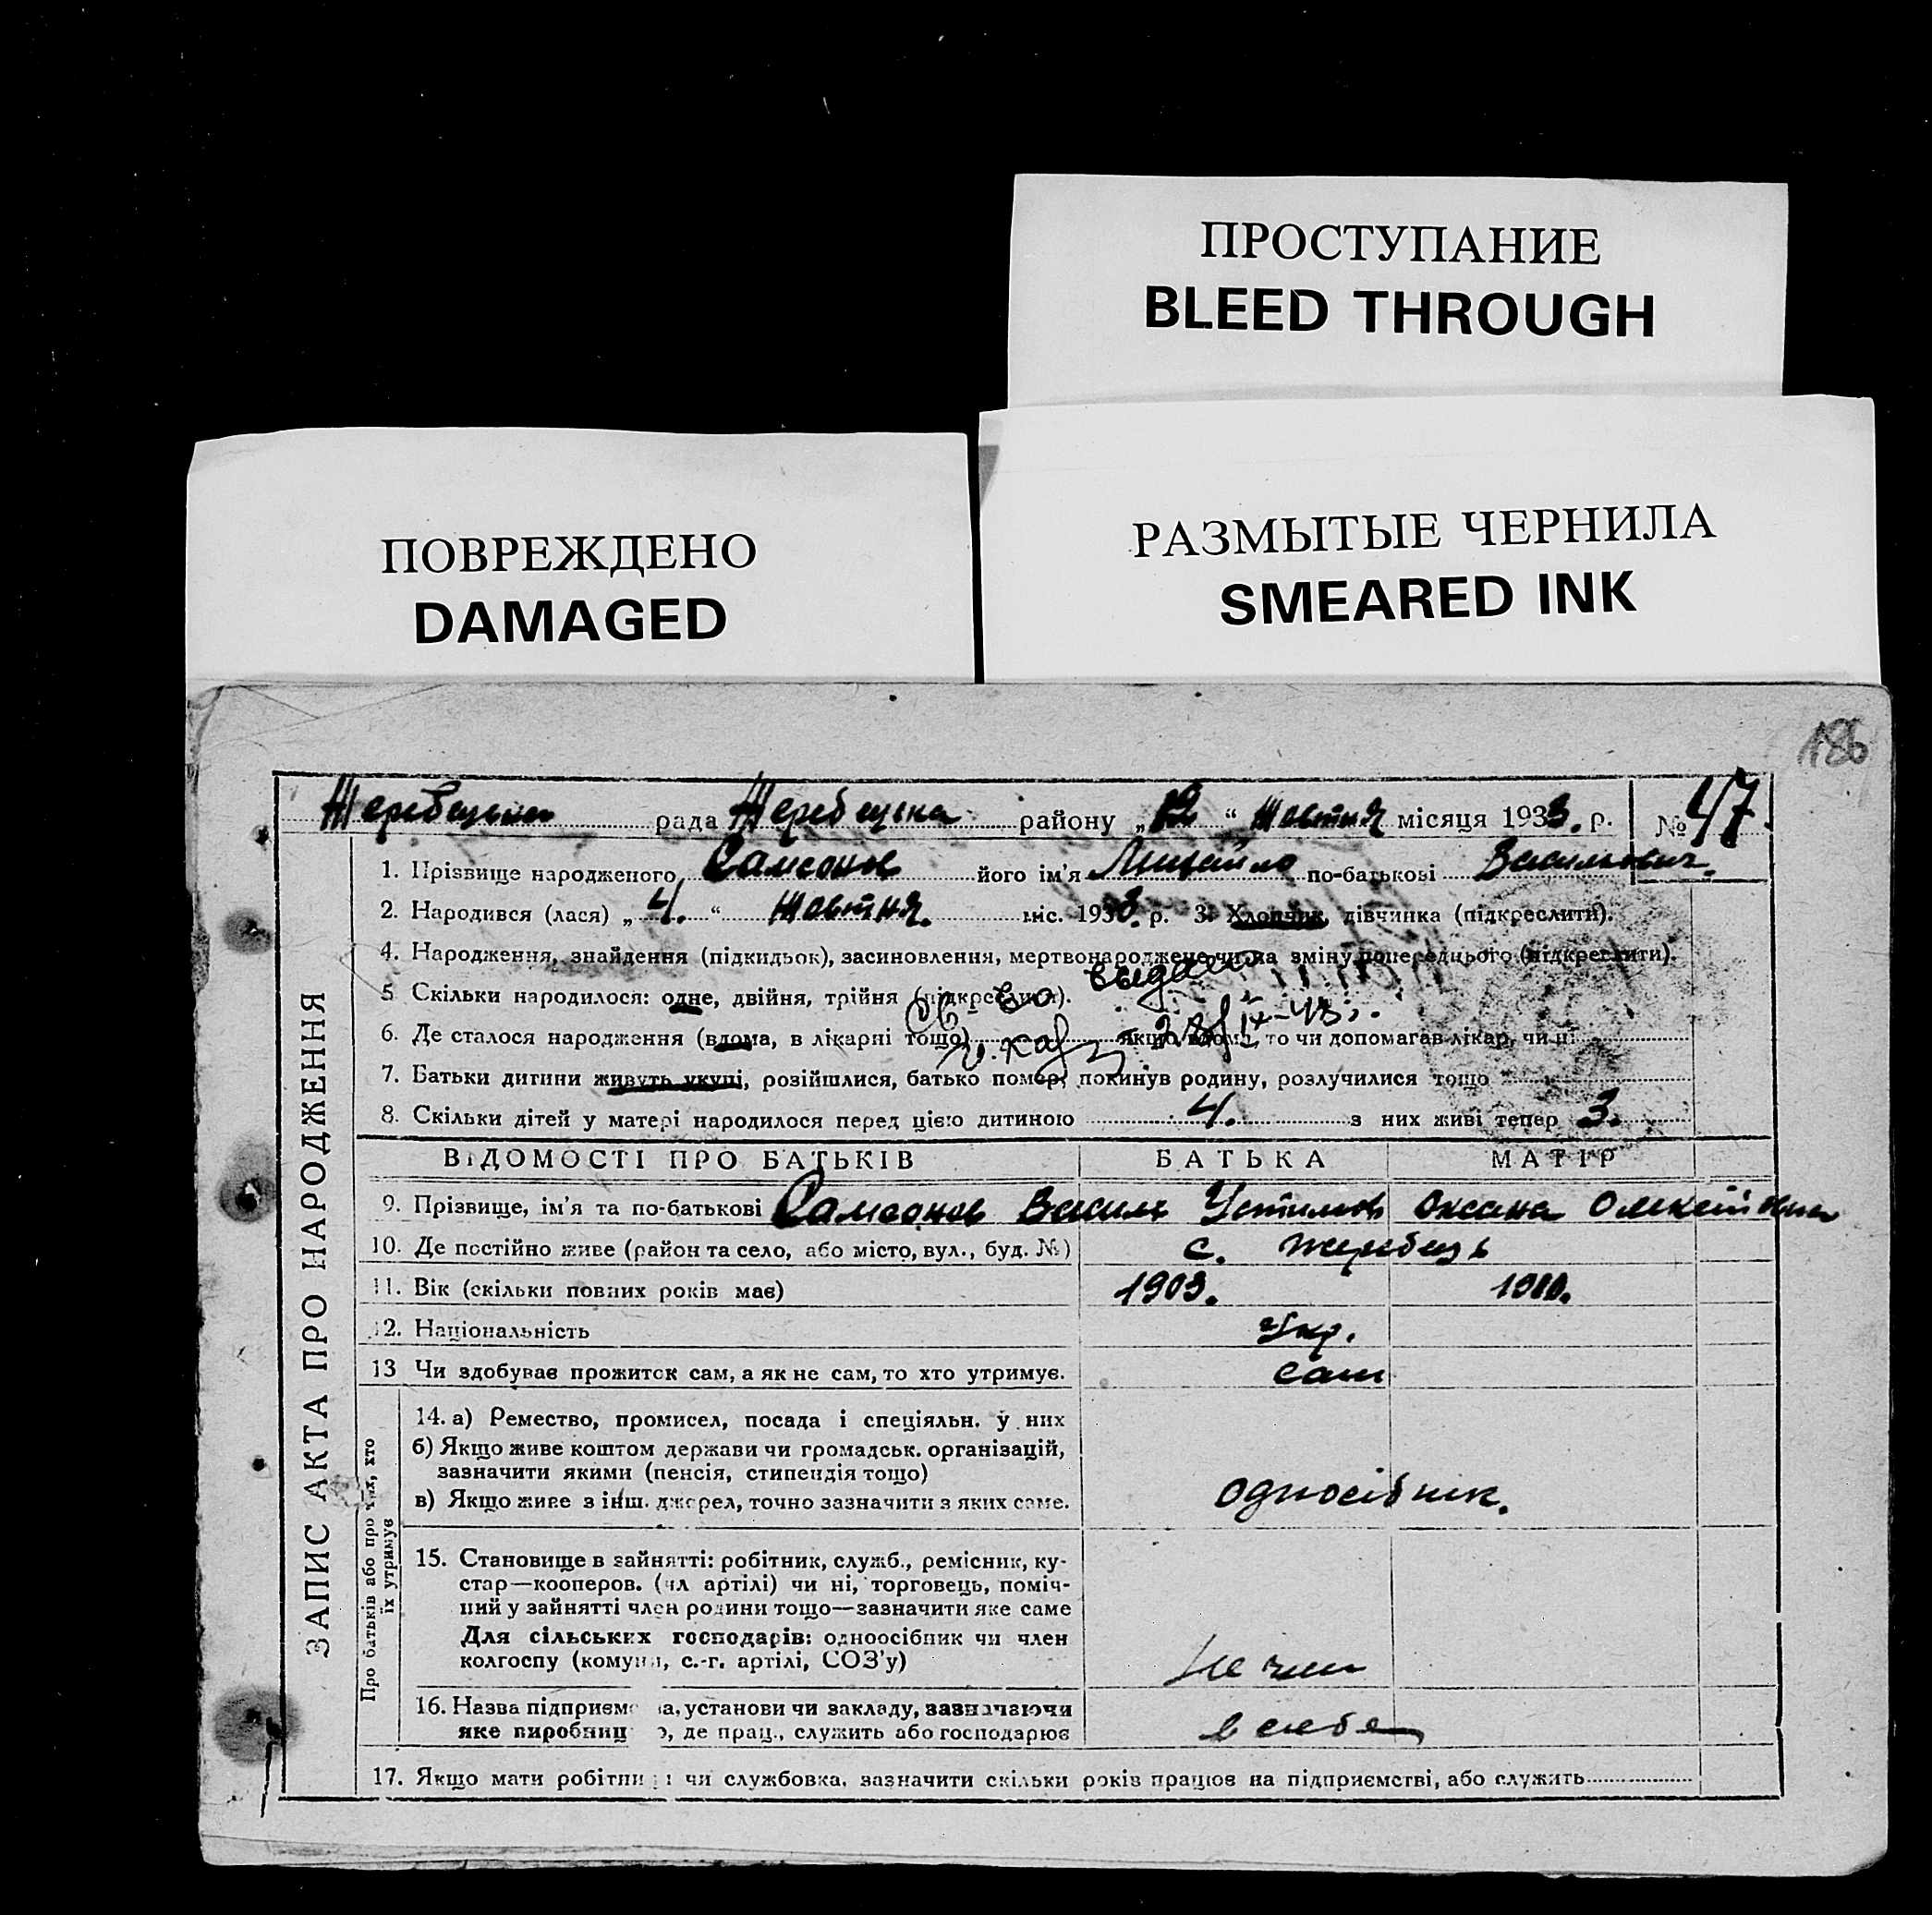 ПРОСТУПАНИЕ
BLEED THROUGH
ПОВРЕЖДЕНО
DAMAGED
РАЗМЫТЫЕ ЧЕРНИЛА
SMEARED INK
186
Жеребецька рада Жеребецька району „12“ Жовтня місяця 1933. р. № 47.
ЗАПИС АКТА ПРО НАРОДЖЕННЯ
1. Прізвище народженого Самсонов його ім'я Михайло по-батькові Васильович.
2. Народився (лася) „4.“ Жовтня. міс. 1933. р. 3. Хлопчик, дівчинка (підкреслити).
4. Народження, знайдення (підкидьок), засиновлення, мертвонароджене чи на зміну попереднього (підкреслити).
5 Скільки народилося: одне, двійня, трійня (підкреслити).
6. Де сталося народження (вдома, в лікарні тощо) якщо вдома, то чи допомагав лікар, чи ні
7. Батьки дитини живуть укупі, розійшлися, батько помер, покинув родину, розлучилися тощо
8. Скільки дітей у матері народилося перед цією дитиною 4. з них живі тепер 3.
ВІДОМОСТІ ПРО БАТЬКІВ БАТЬКА МАТІР
9. Прізвище, ім'я та по-батькові Самсонов Василь Устимов Оксана Олексійовна
10. Де постійно живе (район та село, або місто, вул., буд. №) с. Жеребець
11. Вік (скільки повних років має) 1903. 1910.
12. Національність Укр.
13 Чи здобуває прожиток сам, а як не сам, то хто утримує. сам
Про батьків або про тих, хто їх утримує
14. а) Ремество, промисел, посада і спеціяльн. у них
б) Якщо живе коштом держави чи громадськ. організацій,
зазначити якими (пенсія, стипендія тощо)
в) Якщо живе з інш. джерел, точно зазначити з яких саме. односібник.
15. Становище в зайнятті: робітник, служб., ремісник, ку-
стар—кооперов. (чл артілі) чи ні, торговець, поміч-
ний у зайнятті член родини тощо—зазначити яке саме
Для сільських господарів: одноосібник чи член
колгоспу (комуни, с.-г. артілі, СОЗ'у) не член
16. Назва підприємства, установи чи закладу, зазначаючи
яке виробництво, де прац., служить або господарює в себе
17. Якщо мати робітниця чи службовка, зазначити скільки років працює на підприємстві, або служить